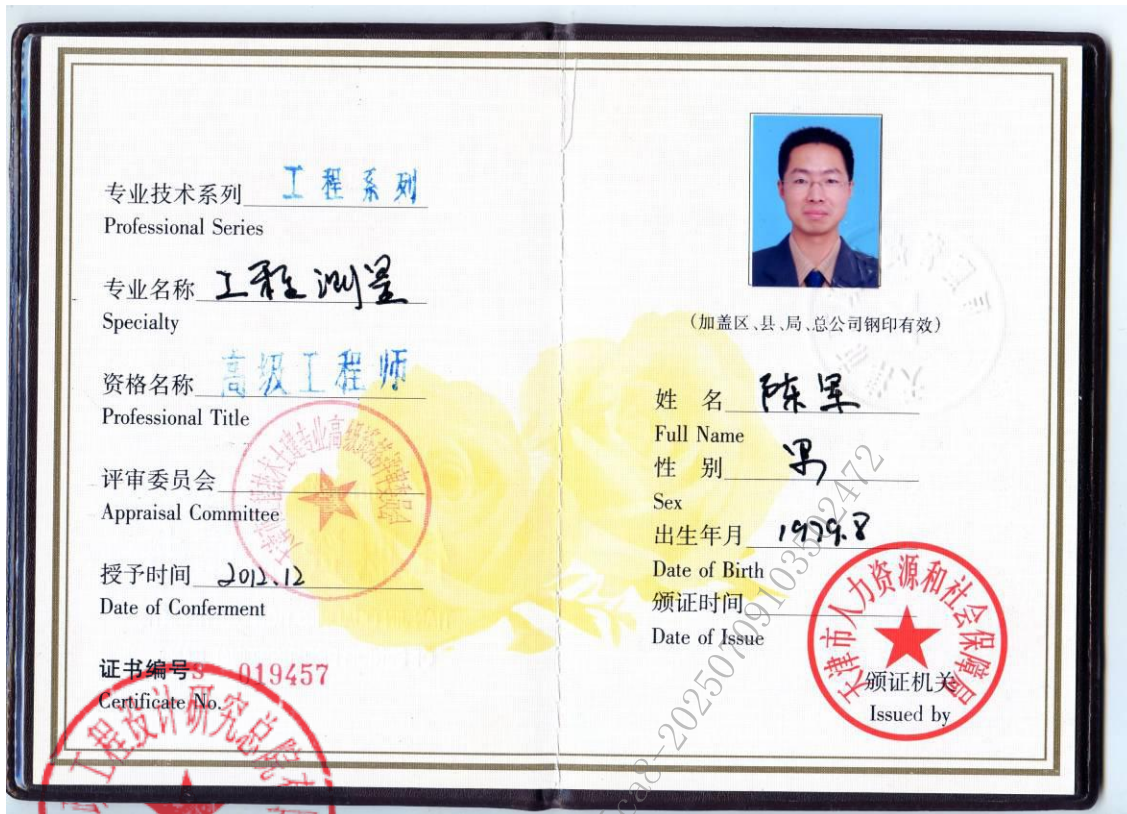 专业技术系列 工程系列
Professional Series
专业名称 工程测量
Specialty
资格名称 高级工程师
Professional Title
评审委员会
Appraisal Committee
授予时间 2012.12
Date of Conferment
证书编号S 019457
Certificate No.
工程设计研究总院有
(加盖区、县、局、总公司钢印有效)
姓 名 陈军
Full Name
性 别 男
Sex
出生年月 1979.8
Date of Birth
颁证时间
Date of Issue
天津市人力资源和社会保障局
颁证机关
Issued by
ca8-20250709103592472